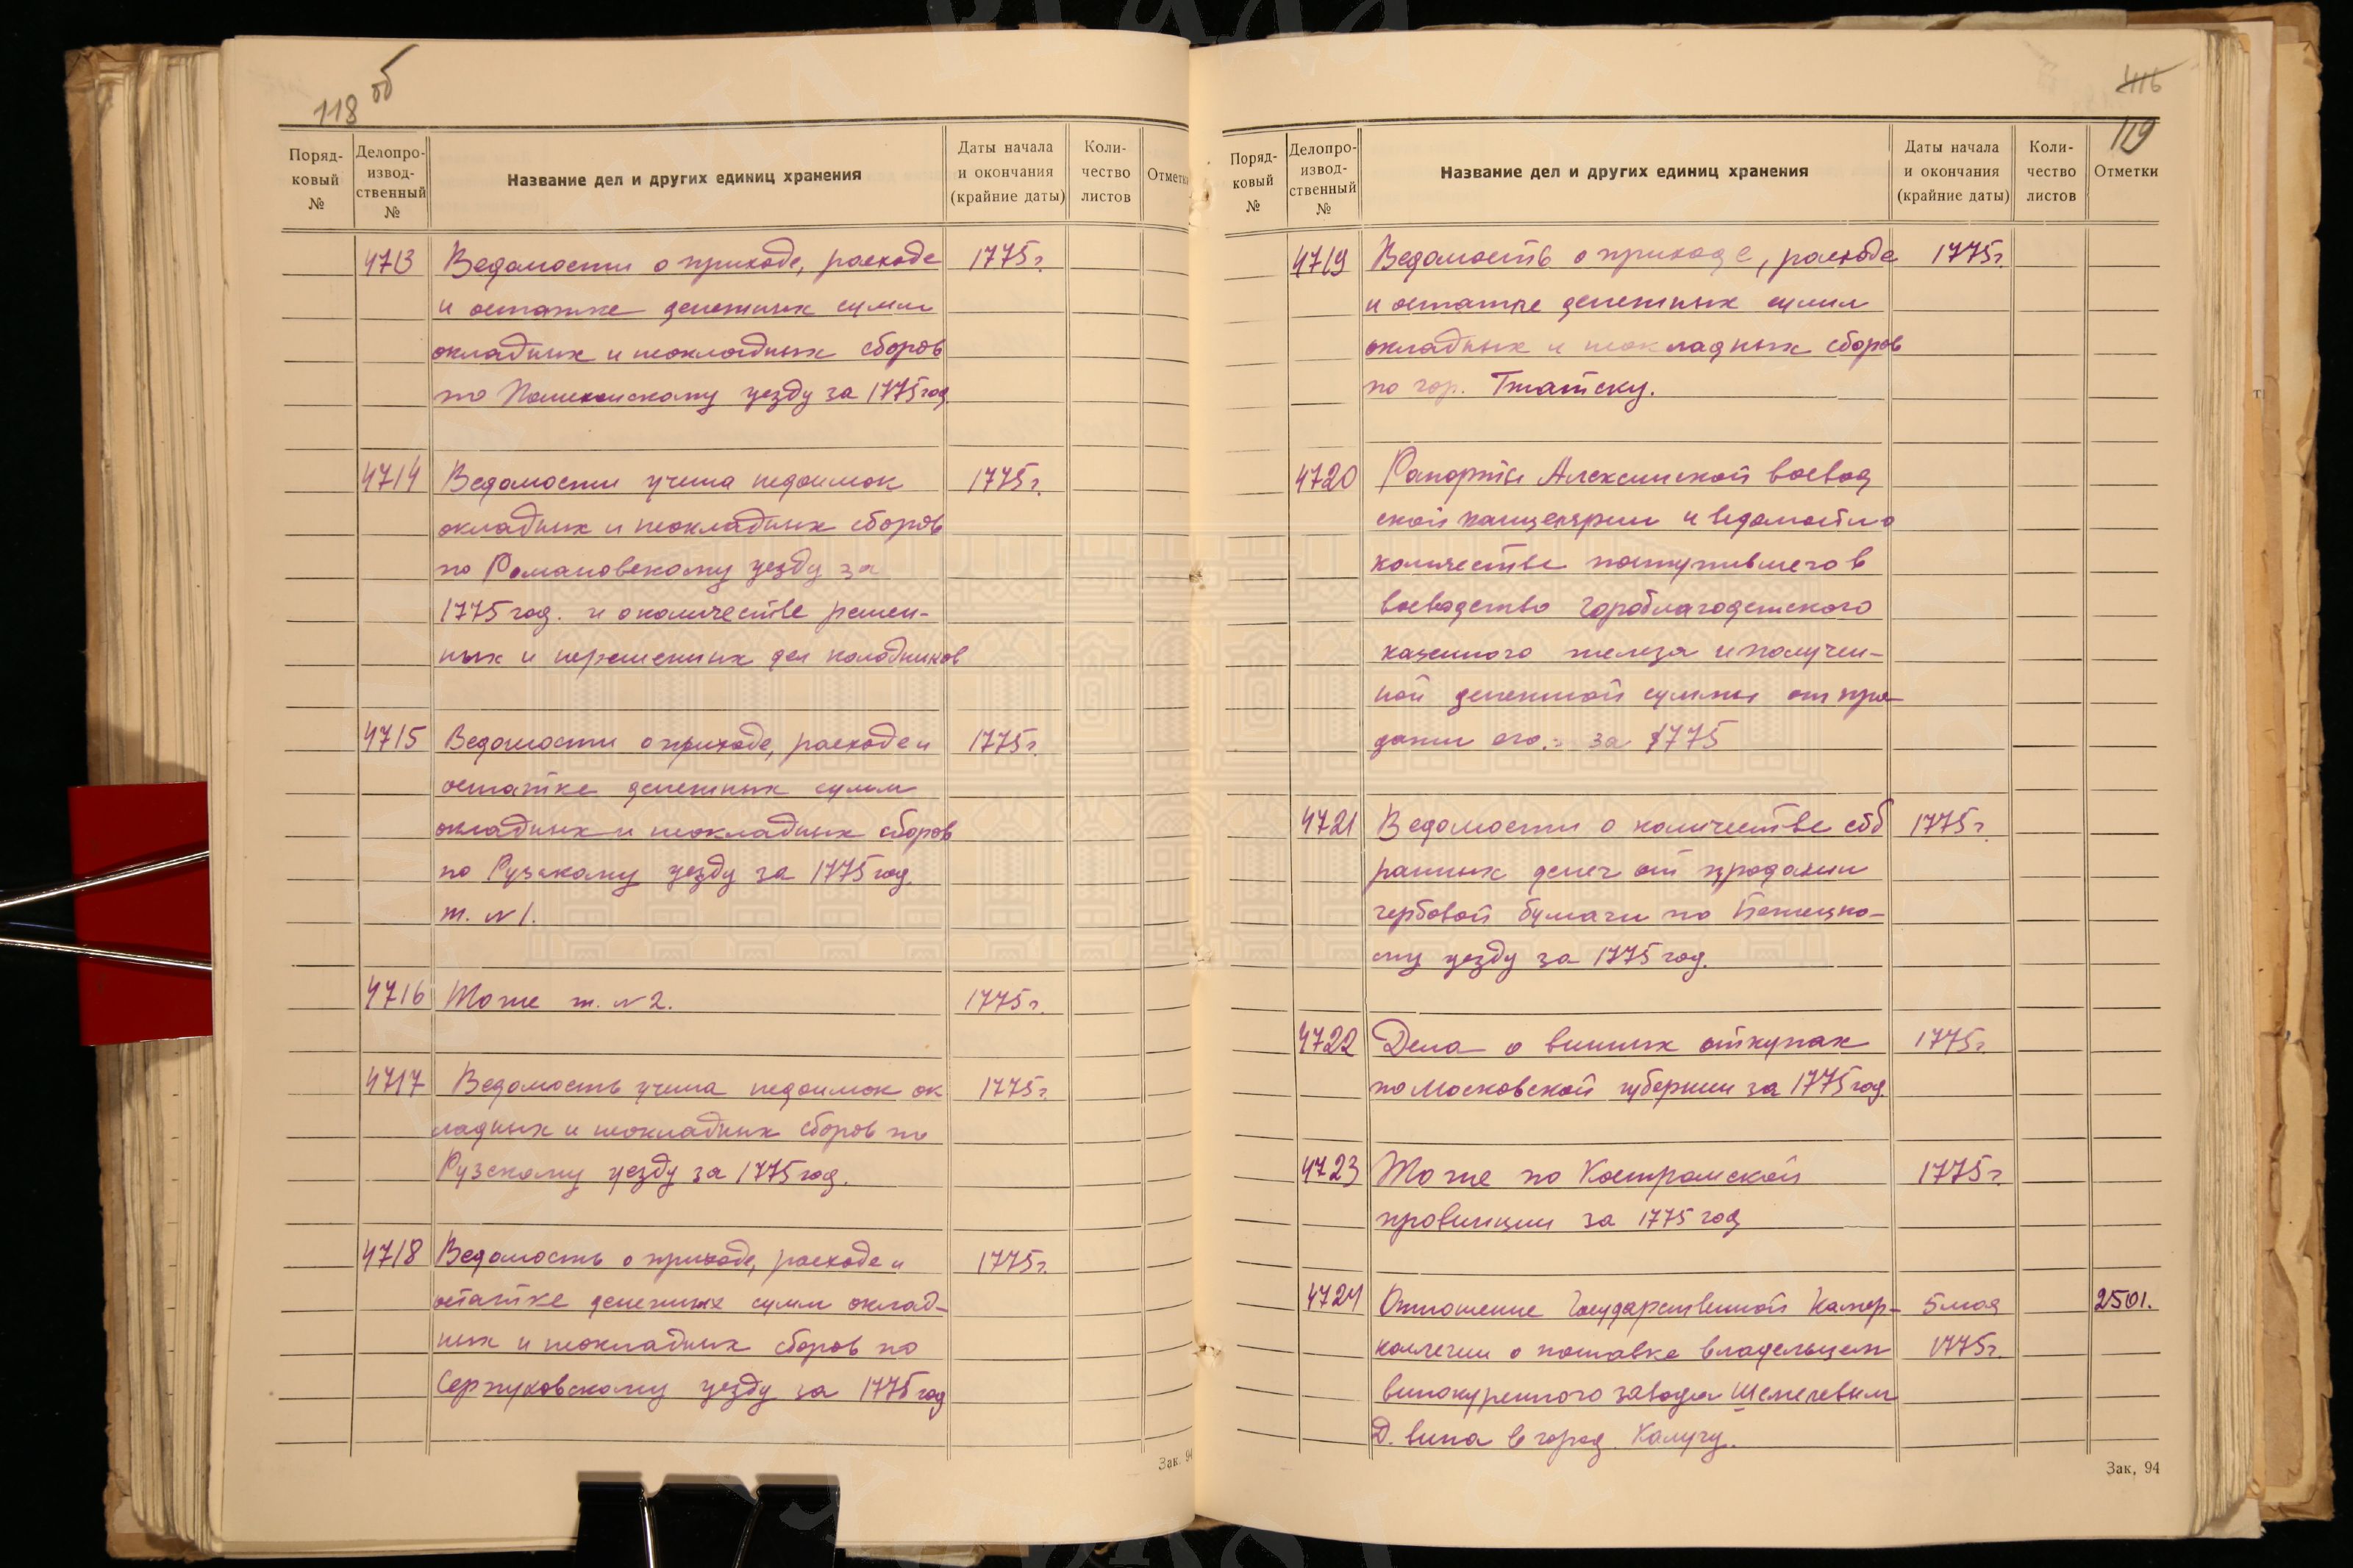 118 об
Поряд-
ковый
№
Делопро-
извод-
ственный
№
Название дел и других единиц хранения
Даты начала
и окончания
(крайние даты)
Коли-
чество
листов
Отметк
4713 Ведомости о приходе, расходе 1775 г.
и остатке денежных сумм
окладных и неокладных сборов
по Пошехонскому уезду за 1775 год
4714 Ведомости учета недоимок 1775 г.
окладных и неокладных сборов
по Романовскому уезду за
1775 год. и о количестве решен-
ных и нерешенных дел колодников
4715 Ведомости о приходе, расходе и 1775 г.
остатке денежных сумм
окладных и неокладных сборов
по Рузскому уезду за 1775 год.
т. №1.
4716 То же т. №2. 1775 г.
4717 Ведомость учета недоимок ок 1775 г.
ладных и неокладных сборов по
Рузскому уезду за 1775 год.
4718 Ведомость о приходе, расходе и 1775 г.
остатке денежных сумм оклад-
ных и неокладных сборов по
Серпуховскому уезду за 1775 год
Зак. 94
116
119
Поряд-
ковый
№
Делопро-
извод-
ственный
№
Название дел и других единиц хранения
Даты начала
и окончания
(крайние даты)
Коли-
чество
листов
Отметки
4719 Ведомость о приходе, расходе 1775 г.
и остатке денежных сумм
окладных и неокладных сборов
по гор. Гжатску.
4720 Рапорты Алексинской воевод
ской канцелярии и ведомости о
количестве поступившего в
воеводство Гороблагодатского
казенного железа и получен-
ной денежной суммы от про-
дажи его. за 1775
4721 Ведомости о количестве соб 1775 г.
ранных денег от продажи
гербовой бумаги по Бежецко-
му уезду за 1775 год.
4722 Дела о винных откупах 1775 г.
по Московской губернии за 1775 год.
4723 То же по Костромской 1775 г.
провинции за 1775 год
4724 Отношение Государственной Камер- 5 мая 2501.
коллегии о поставке владельцем 1775 г.
винокуренного завода Шемелевым
Д. вина в город. Калугу.
Зак. 94